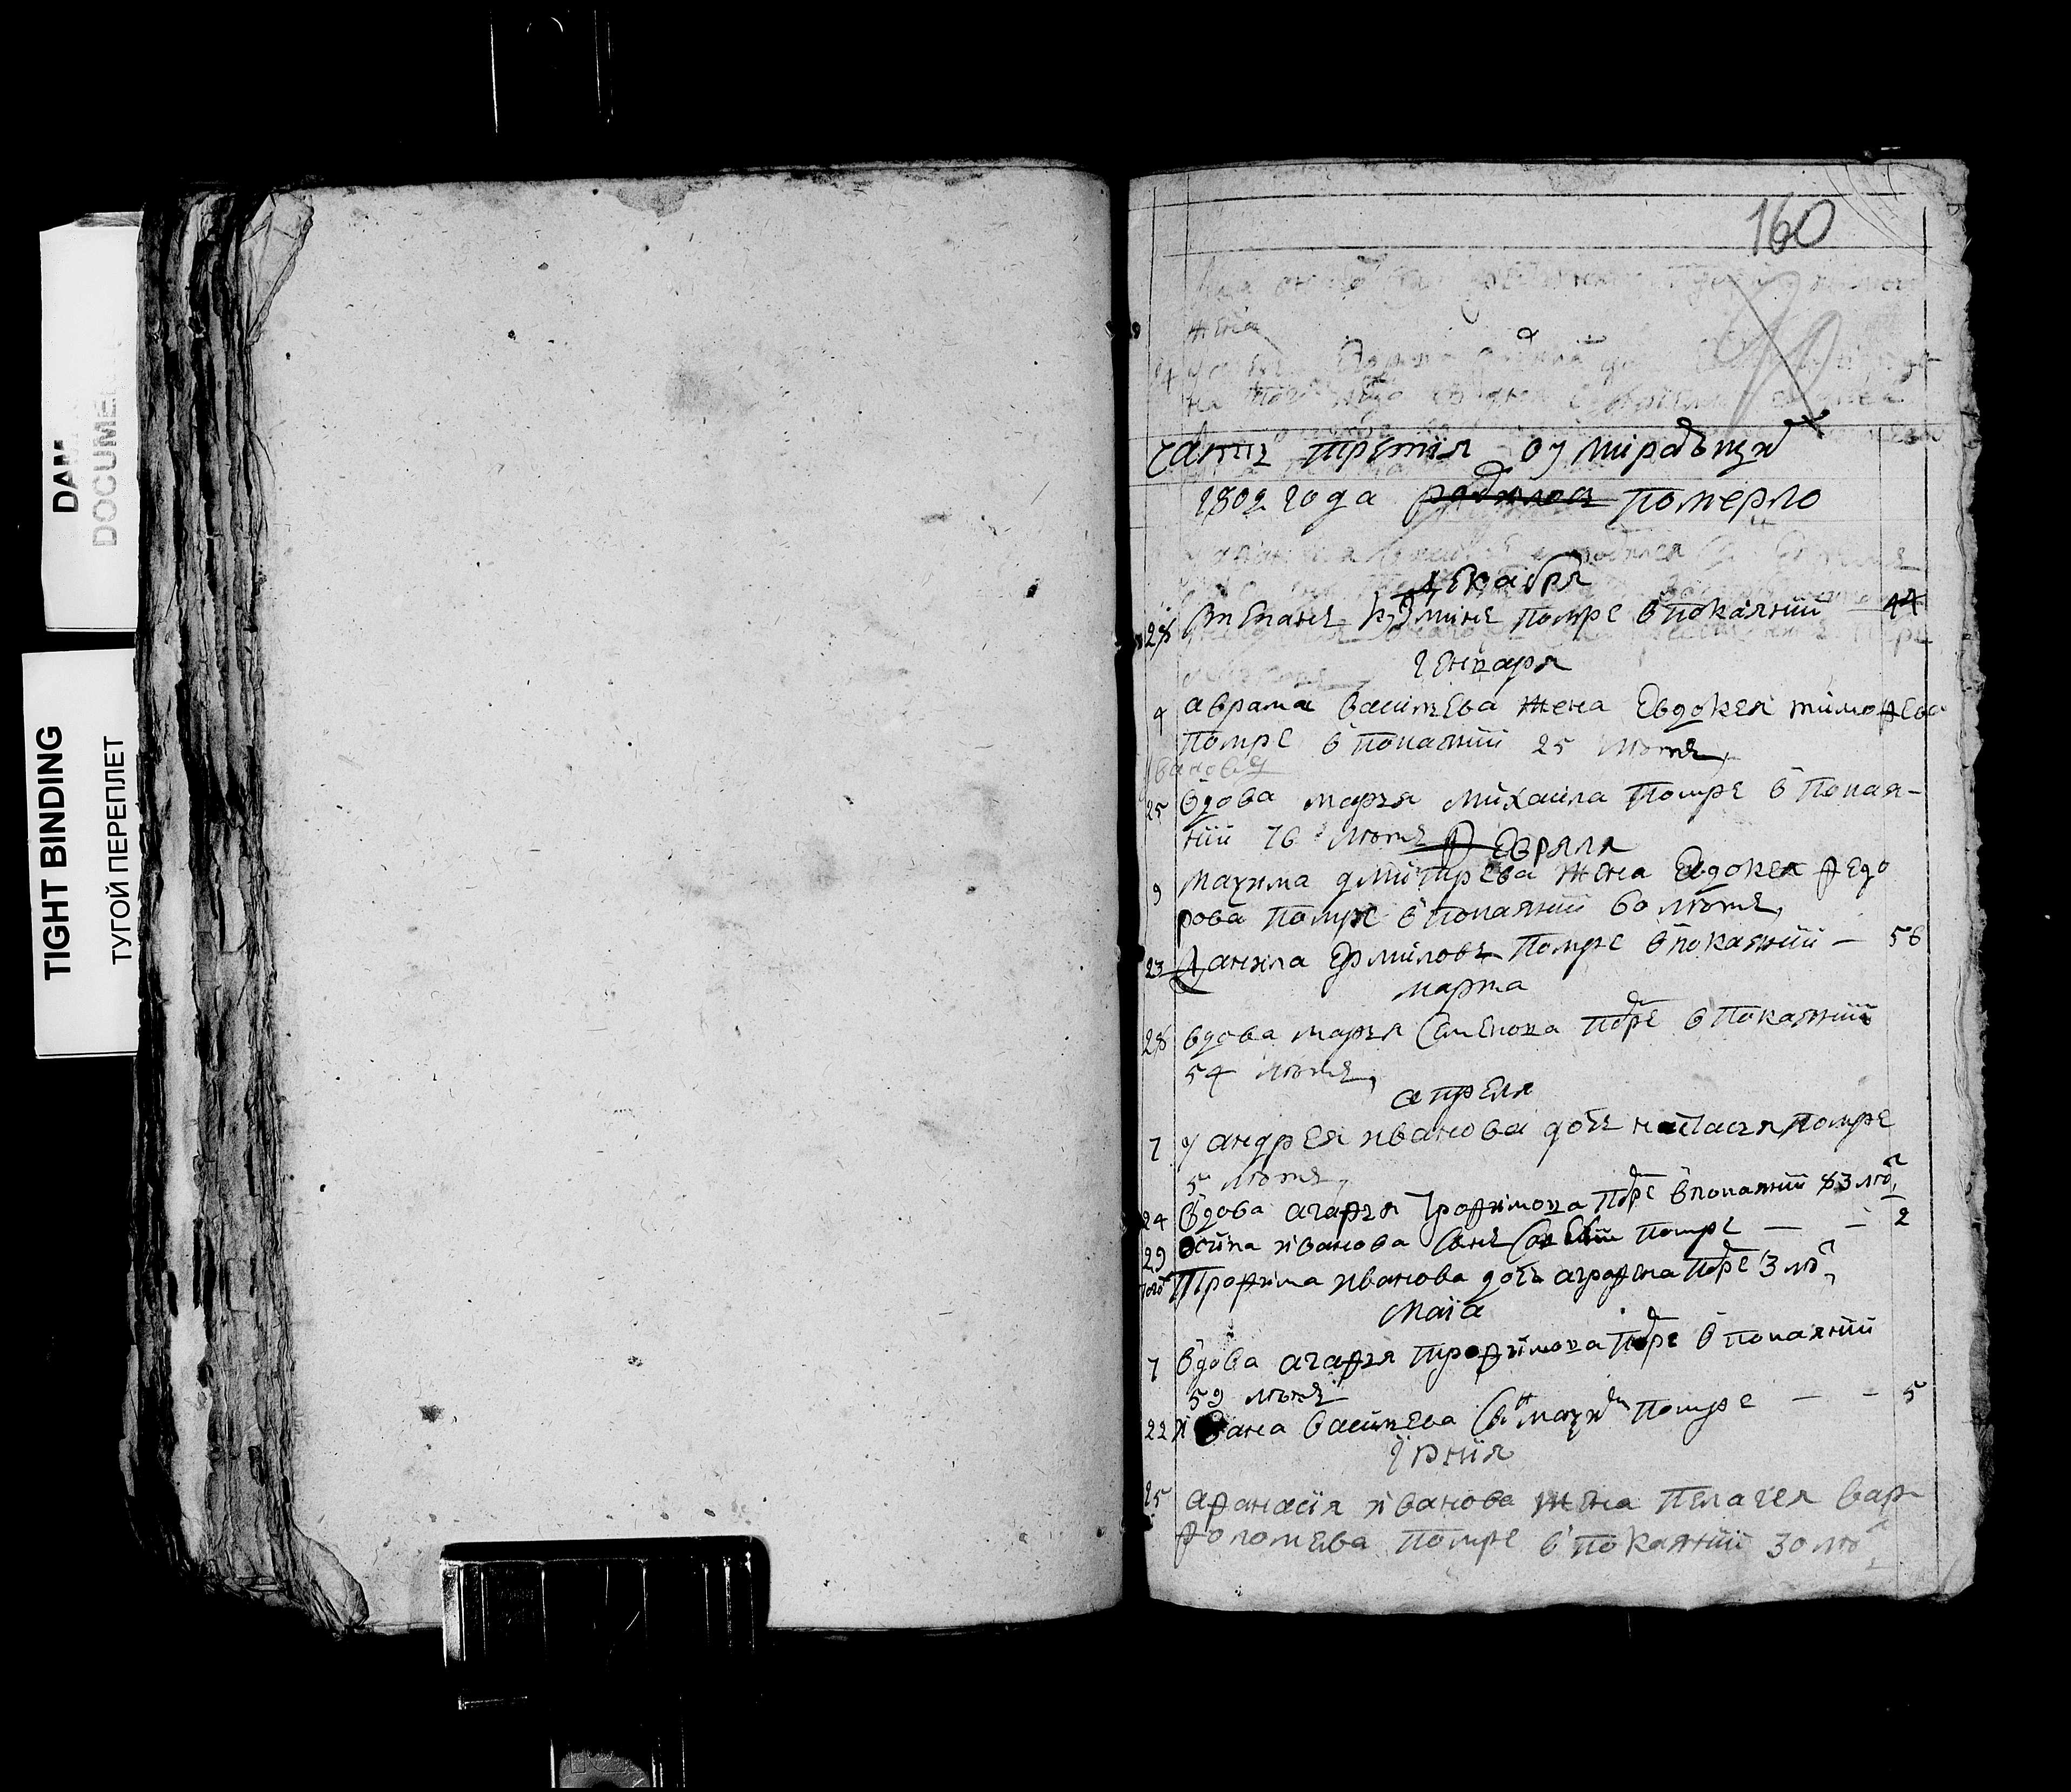 DAM
DOCUME
TIGHT BINDING
ТУГОЙ ПЕРЕПЛЕТ
160
жена
часть третїя оумирающих
1802 года родилось померло
декабря
28 Степанъ Кузминъ помре в покаянїи 44
генваря
4 аврама васильева жена Евдокея тимофева
помре в покаянїи 25 лѣтъ
25 вдова марья михаила помре в покая-
нїи 76 лѣтъ
Февраля
9 маѯима дмитрева жена Евдокея федо
рова помре в покаянїи 60 лѣтъ
23 Данила Ермиловъ помре в покаянїи — 56
марта
28 вдова марья Семенова помре в покаянїи
54 лѣтъ
апреля
7 у андрея иванова дочь настасья помре
5 лѣтъ
24 вдова агафья Трофимова помре в покаянїи 83 лѣ
29 осипа иванова сынъ помре — — 2
того Трофима иванова дочь аграфена помре 3 лѣ
Маїа
7 вдова агафья трофимова помре в покаянїи
59 лѣтъ
22 ивана васильева сын маѯим помре — — 5
їюнїя
25 афанасїя иванова жена пелагея вар-
фоломева помре в покаянїи 30 лѣ